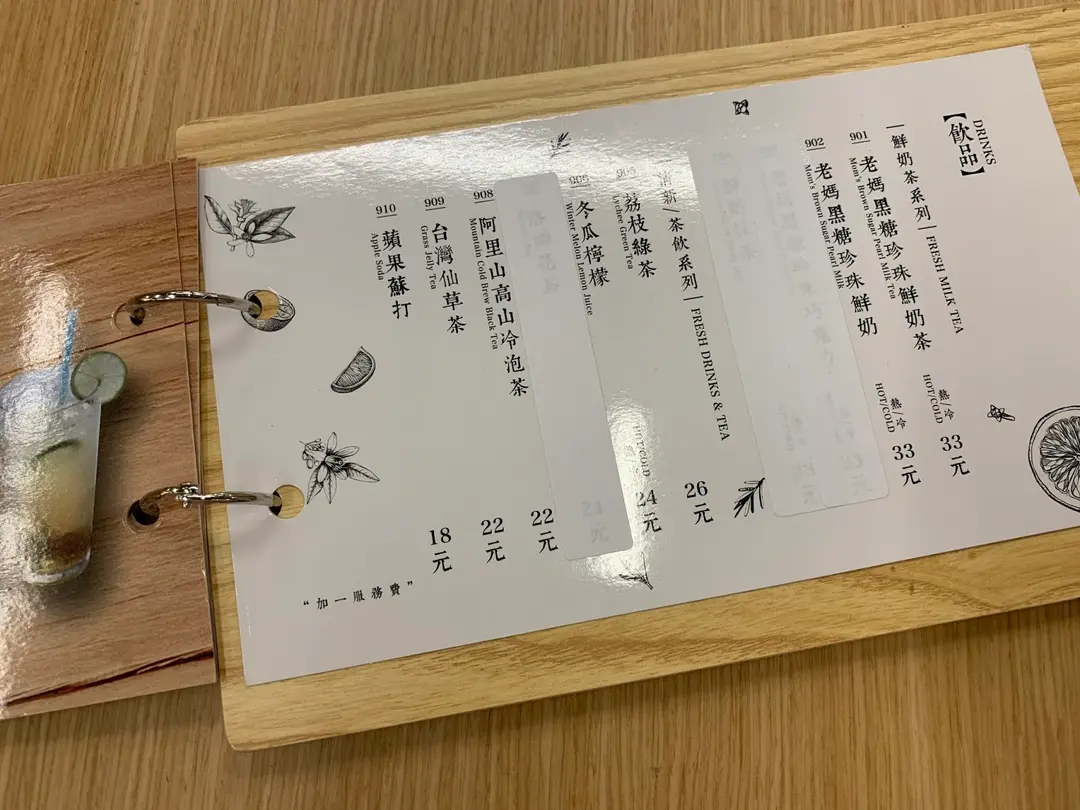 DRINKS
【飲品】
鮮奶茶系列 | FRESH MILK TEA
901
老媽黑糖珍珠鮮奶茶
Mom's Brown Sugar Pearl Milk Tea
熱/冷
HOT/COLD
33元
902
老媽黑糖珍珠鮮奶
Mom's Brown Sugar Pearl Milk
熱/冷
HOT/COLD
33元
清新/茶飲系列 | FRESH DRINKS & TEA
905
荔枝綠茶
Lychee Green Tea
26元
906
冬瓜檸檬
Winter Melon Lemon Juice
HOT/COLD
24元
908
阿里山高山冷泡茶
Mountain Cold Brew Black Tea
22元
909
台灣仙草茶
Grass Jelly Tea
22元
910
蘋果蘇打
Apple Soda
18元
“加一服務費”